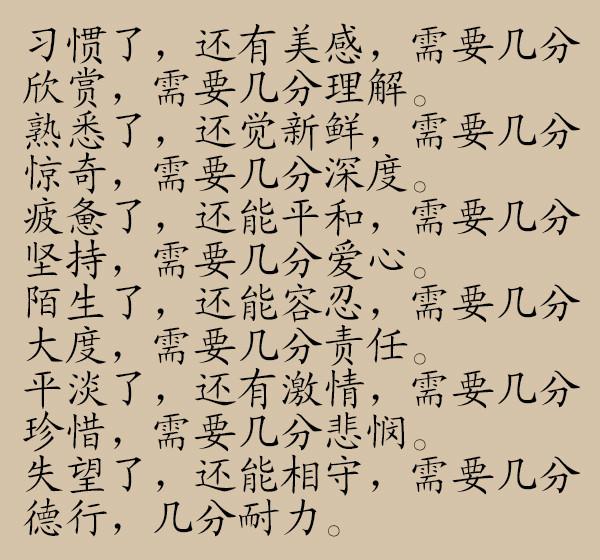 习惯了，还有美感，需要几分
欣赏，需要几分理解。
熟悉了，还觉新鲜，需要几分
惊奇，需要几分深度。
疲惫了，还能平和，需要几分
坚持，需要几分爱心。
陌生了，还能容忍，需要几分
大度，需要几分责任。
平淡了，还有激情，需要几分
珍惜，需要几分悲悯。
失望了，还能相守，需要几分
德行，几分耐力。